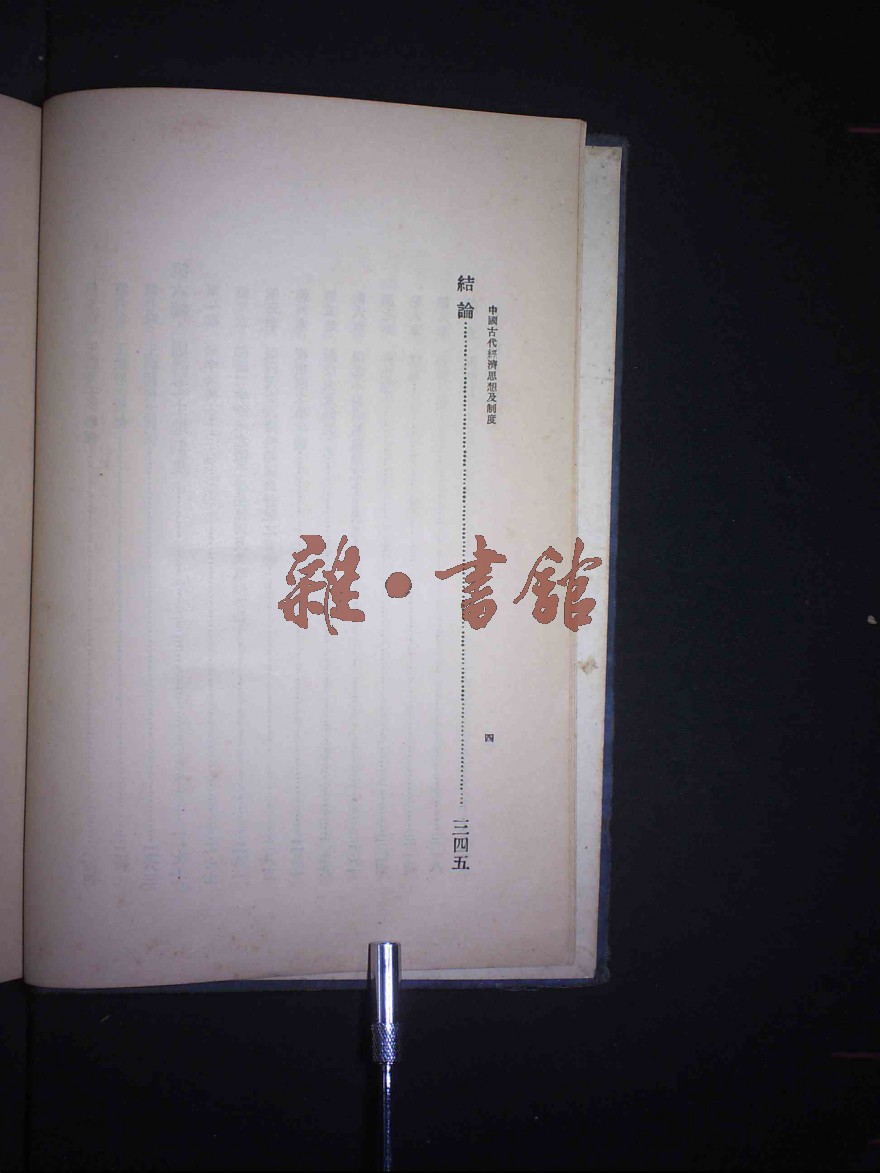 中國古代經濟思想及制度
四
結論……三四五
雜·書館